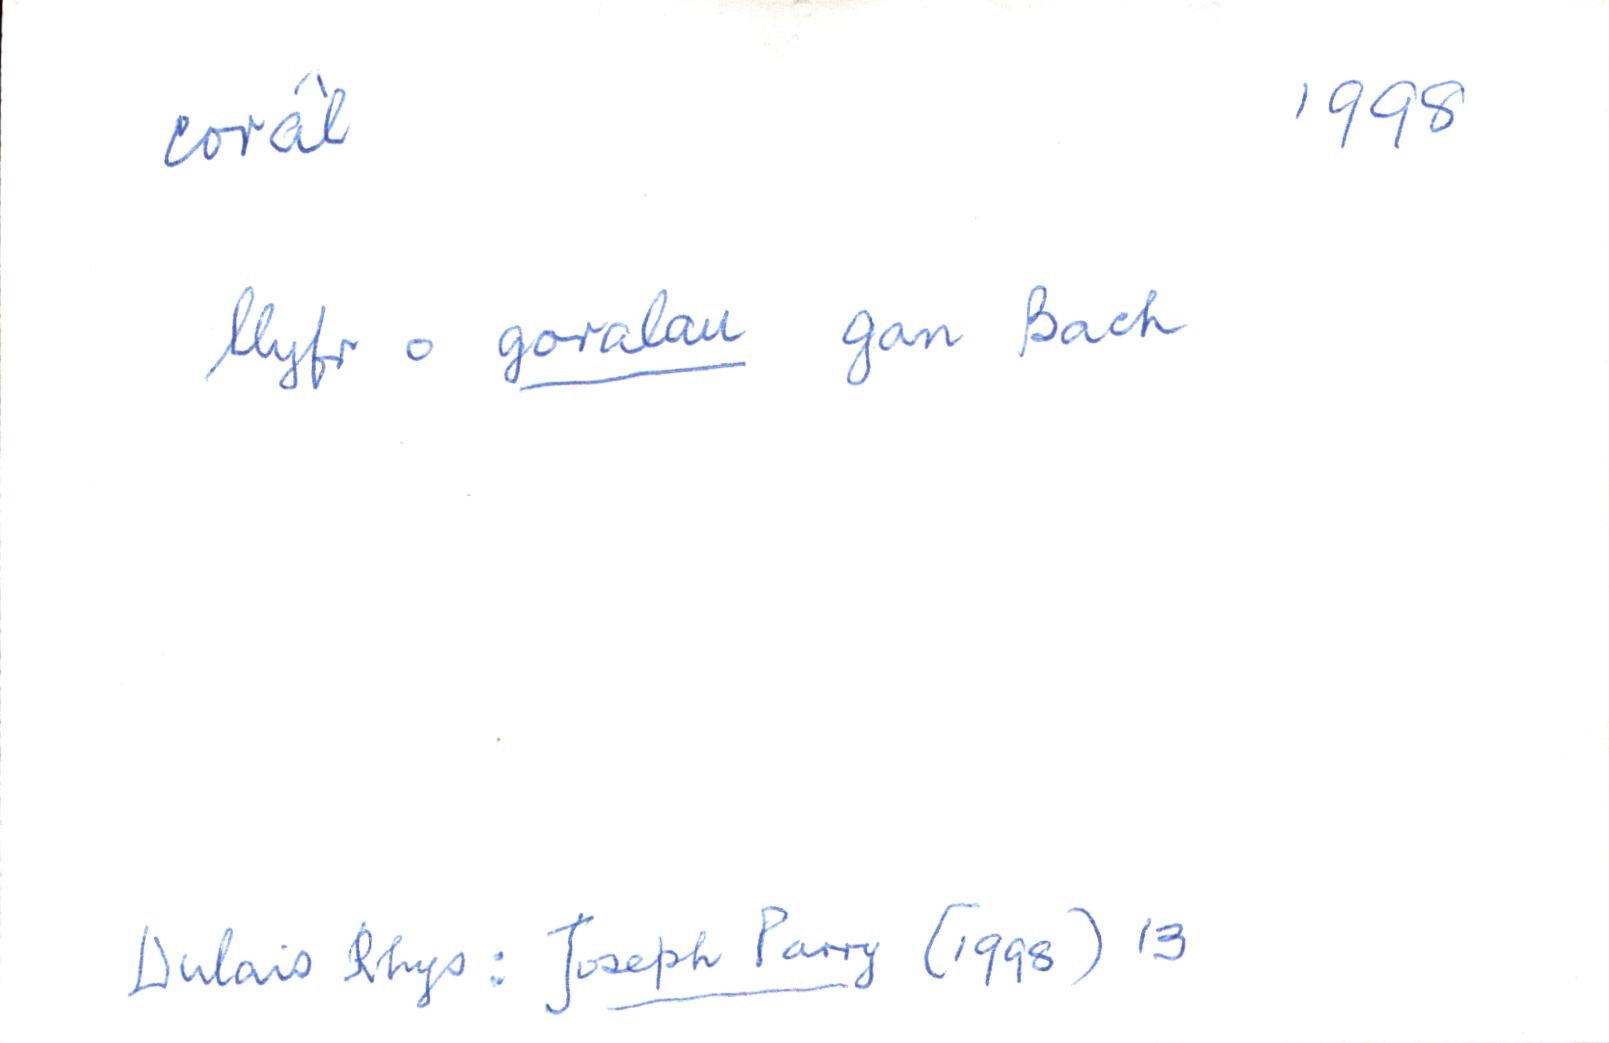 corâl 1998
llyfr o goralau gan Bach
Dulais Rhys: Joseph Parry (1998) 13